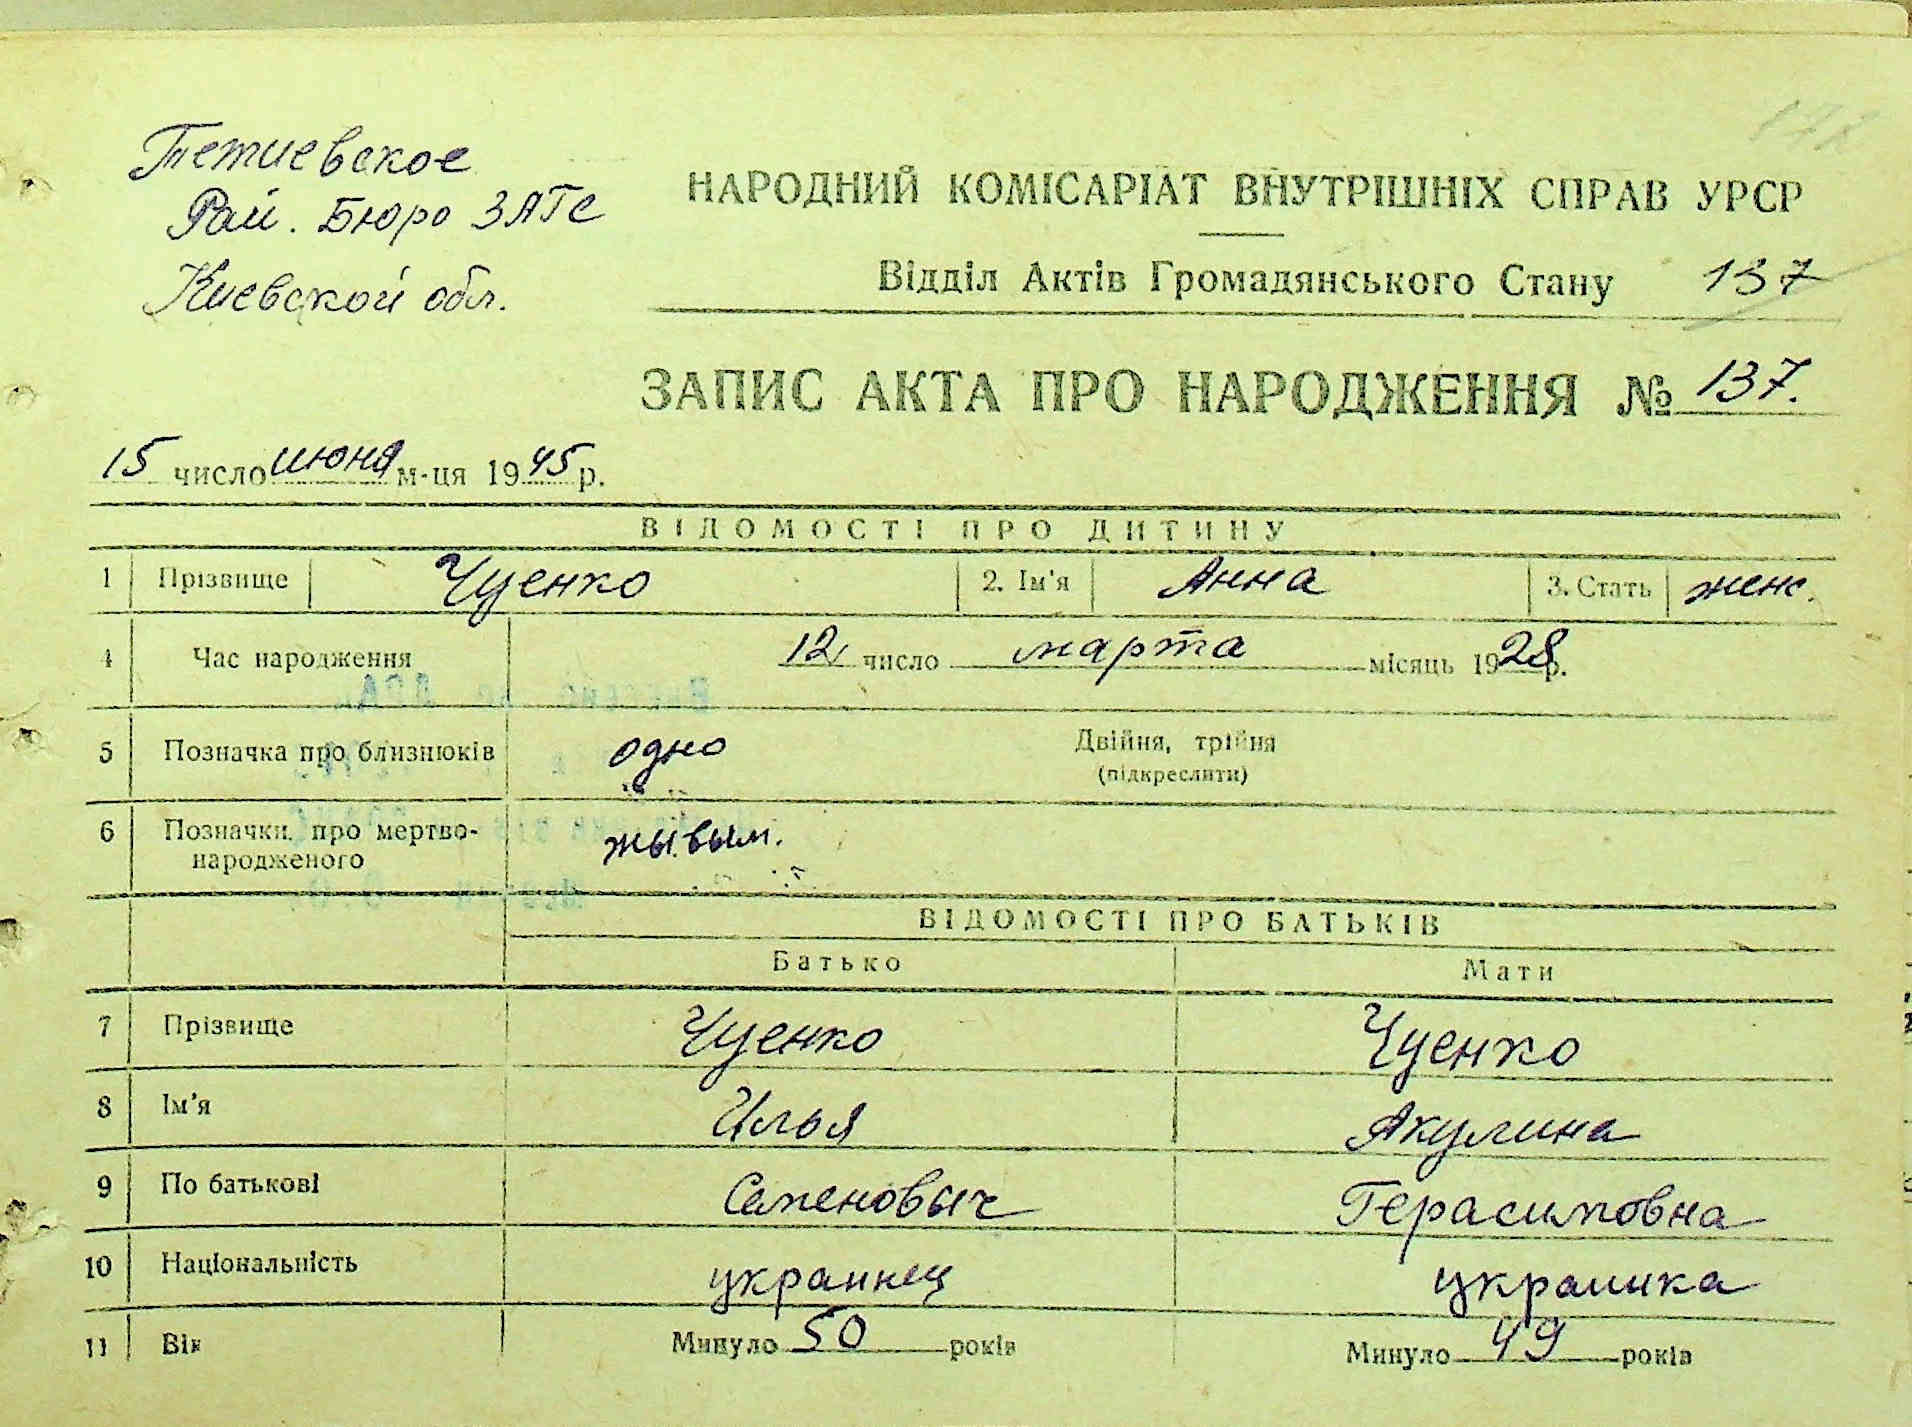 Тетиевское
Рай. Бюро ЗАГС
Киевской обл.
НАРОДНИЙ КОМІСАРІАТ ВНУТРІШНІХ СПРАВ УРСР
Відділ Актів Громадянського Стану 137
ЗАПИС АКТА ПРО НАРОДЖЕННЯ № 137.
15 число июня м-ця 1945 р.
ВІДОМОСТІ ПРО ДИТИНУ
1 Прізвище Чуенко 2. Ім'я Анна 3. Стать женс.
4 Час народження 12 число марта місяць 1928 р.
5 Позначка про близнюків одно Двійня, трійня
(підкреслити)
6 Позначки про мертво-
народженого жывым.
ВІДОМОСТІ ПРО БАТЬКІВ
Батько Мати
7 Прізвище Чуенко Чуенко
8 Ім'я Илья Акулина
9 По батькові Семеновыч Герасимовна
10 Національність украинец украинка
11 Вік Минуло 50 років Минуло 49 років